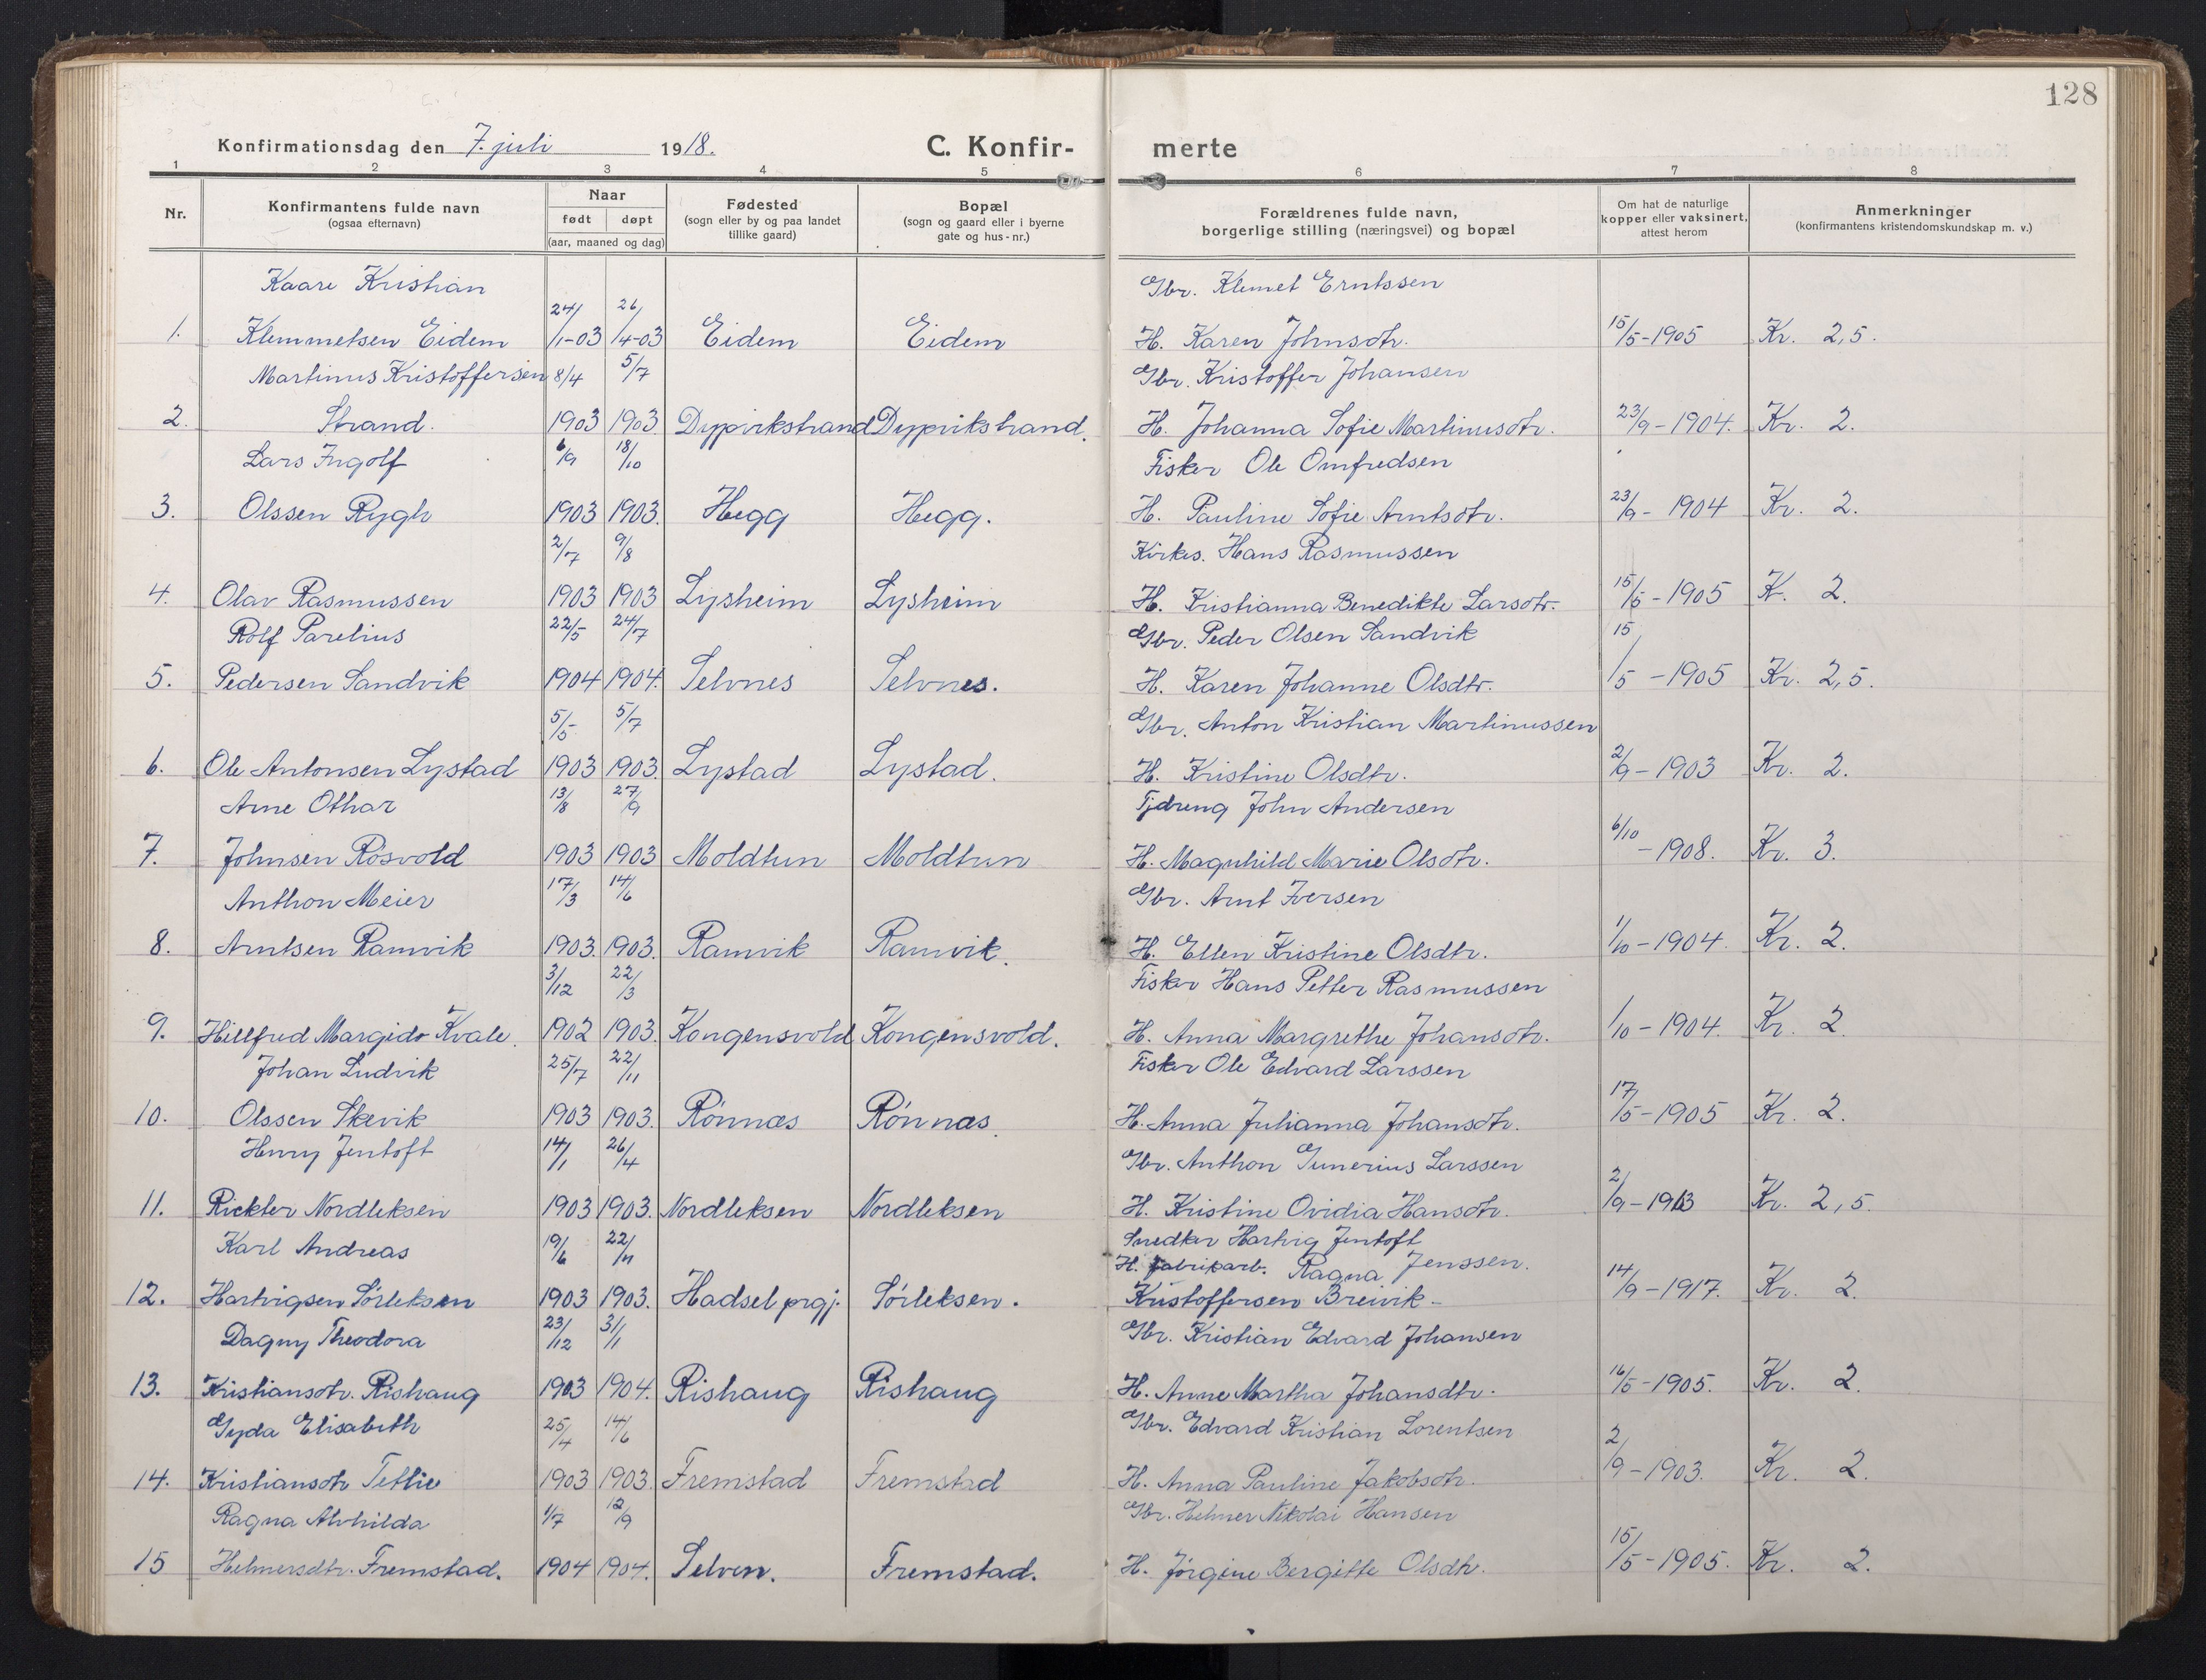 128
Konfirmationsdag den 7. juli 1918.
C. Konfir-
merte
1 2 3 4 5 6 7 8
Nr.
Konfirmantens fulde navn
(ogsaa efternavn)
Naar
født døpt
(aar, maaned og dag)
Fødested
(sogn eller by og paa landet
tillike gaard)
Bopæl
(sogn og gaard eller i byerne
gate og hus-nr.)
Forældrenes fulde navn,
borgerlige stilling (næringsvei) og bopæl
Om hat de naturlige
kopper eller vaksinert,
attest herom
Anmerkninger
(konfirmantens kristendomskundskap m. v.)
Kaare Kristian 24/ 26/ Gbr. Klemet Erntssen
1. Klemmetsen Eidem 1-03 4-03 Eidem Eidem H. Karen Johnsdtr. 15/5-1905 Kr. 2,5.
Martinus Kristoffersen 8/4 5/7 Gbr. Kristoffer Johansen
2. Strand. 1903 1903 Dypvikstrand Dypvikstrand. H. Johanna Sofie Martinusdtr. 23/9-1904. Kr. 2.
Lars Ingolf 6/9 18/10 Fisker Ole Omfredsen
3. Olssen Rygh 1903 1903. Hegg Hegg. H. Pauline Sofie Arntsdtr. 23/9-1904 Kr. 2.
2/7 9/8 Kirkes. Hans Rasmussen
4. Olav Rasmussen 1903 1903 Lysheim Lysheim H. Kristianna Benedikte Larsdtr. 15/5-1905 K. 2.
Rolf Parelius 22/5 24/7 Gbr. Peder Olsen Sandvik 15
5. Pedersen Sandvik 1904 1904. Selvnes Selvnes. H. Karen Johanne Olsdtr. /5-1905 Kr. 2,5.
5/5 5/7 Gbr. Anton Kristian Martinussen
6. Ole Antonsen Lystad 1903 1903. Lystad Lystad. H. Kristine Olsdtr. 2/9-1903 Kr. 2.
Arne Othar 13/8 27/9 Fjdreng John Andersen
7. Johnsen Rösvold 1903 1903 Moldtun Moldtun H. Magnhild Marie Olsdtr. 6/10-1908. Kr. 3.
Anthon Meier 17/3 14/6 Gbr. Arnt Iversen
8. Arntsen Ramvik 1903. 1903. Ramvik Ramvik. H. Ellen Kristine Olsdtr. 1/10-1904. Kr. 2.
3/12 22/3 Fisker Hans Petter Rasmussen
9. Hillfred Margido Kvale. 1902 1903. Kongensvold Kongensvold. H. Anna Margrethe Johansdtr. 1/10-1904. Kr. 2
Johan Ludvik 25/7 22/11 Fisker Ole Edvard Larssen
10. Olssen Skevik 1903 1903. Rönnæs Rönnæs. H. Anna Julianna Johansdtr. 17/5-1905 Kr. 2.
Henry Jentoft 14/1 26/4 Gbr. Anthon Gunerius Larssen
11. Rickter Nordleksen 1903 1903. Nordleksen Nordleksen H. Kristine Ovidia Hansdtr. 2/9-1913 Kr. 2,5.
Karl Andreas 19/6 22/11 Snedker Hartvig Jentoft
H. fabrikarb. Ragna Jenssen.
12. Hartvigsen Sörleksen 1903 1903. Hadsel prgj. Sörleksen. Kristoffersen Breivik- 14/9-1917. Kr. 2.
Dagny Theodora 23/12 3/1 Gbr. Kristian Edvard Johansen
13. Kristiansdtr. Rishaug 1903 1904. Rishaug Rishaug H. Anne Martha Johansdtr. 16/5-1905. Kr. 2.
Gyda Elisabeth 25/4 14/6 Gbr. Edvard Kristian Lorentsen
14. Kristiansdtr Tetlie 1903 1903. Fremstad Fremstad H. Anna Pauline Jakobsdtr. 2/9-1903. Kr. 2.
Ragna Alvhilda 1/7 12/9 Gbr. Helmer Nikolai Hansen
15 Helmersdtr. Fremstad. 1904 1904. Selven. Fremstad. H. Jörgine Bergitte Olsdtr. 15/5-1905. Kr. 2.